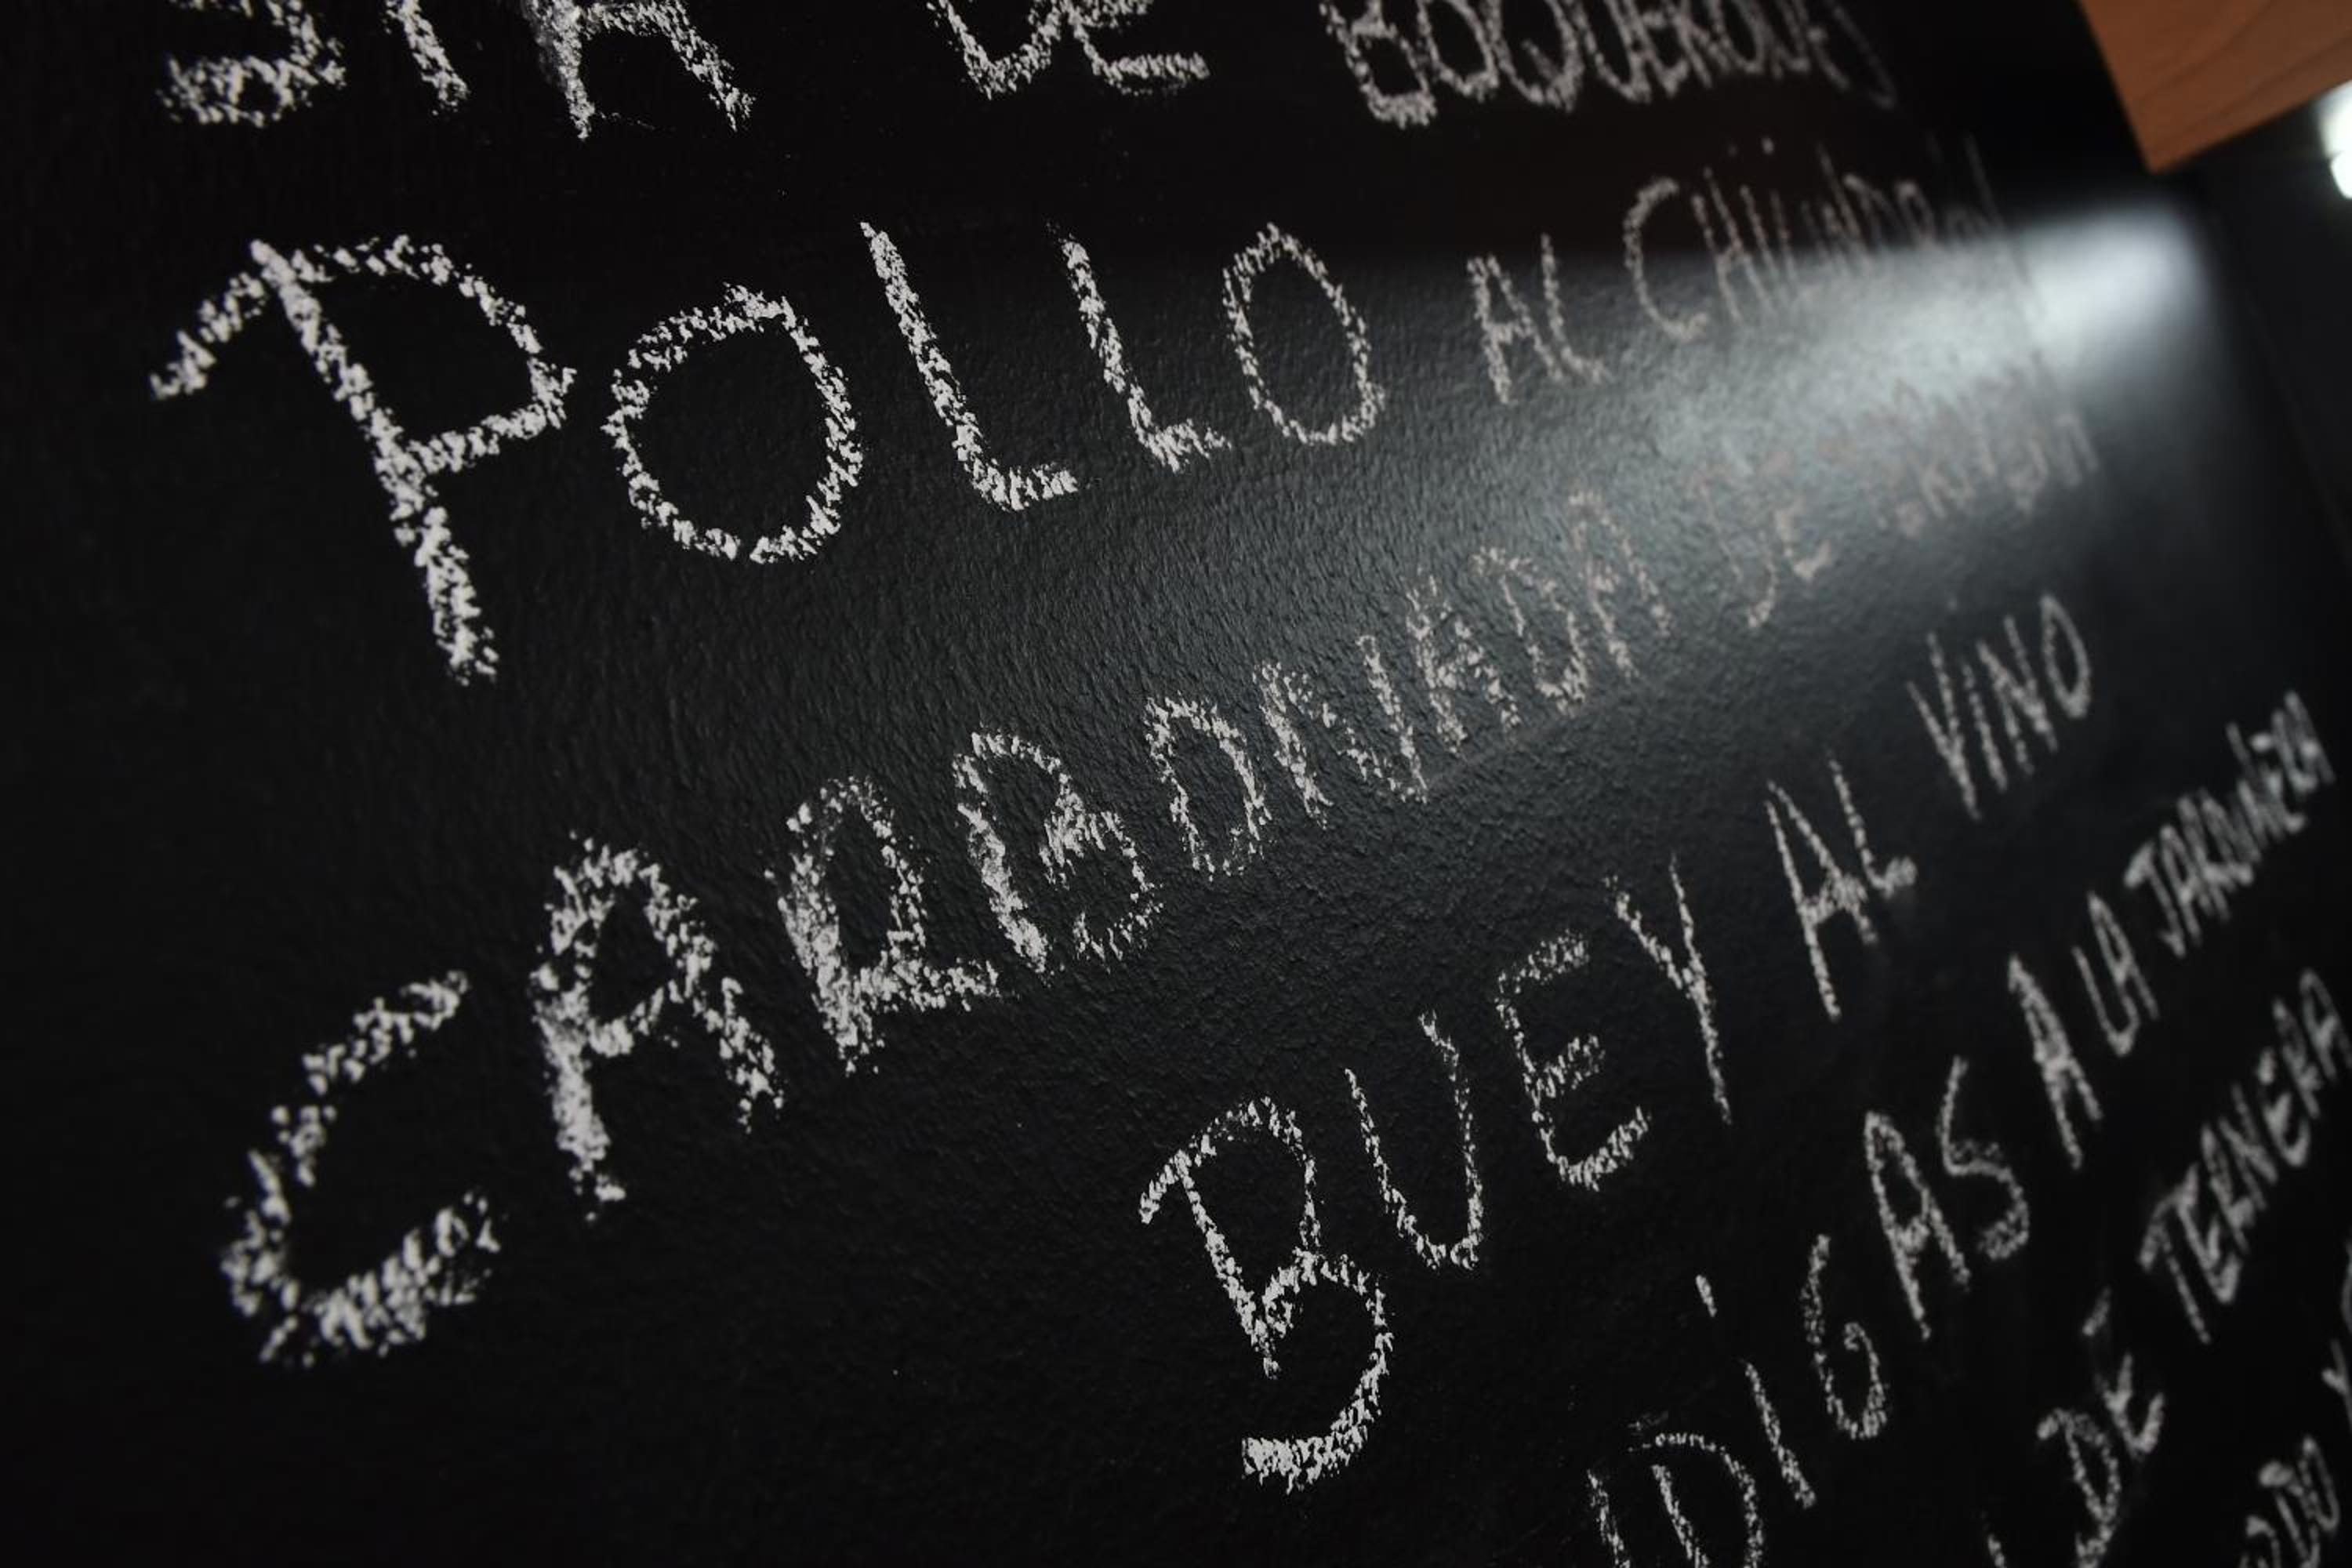 STA DE BOQUERONES
POLLO AL CHILINDRÓN
CARBONNADA DE
BUEY AL VINO
DIGAS A LA JARDINERA
DE TERNERA